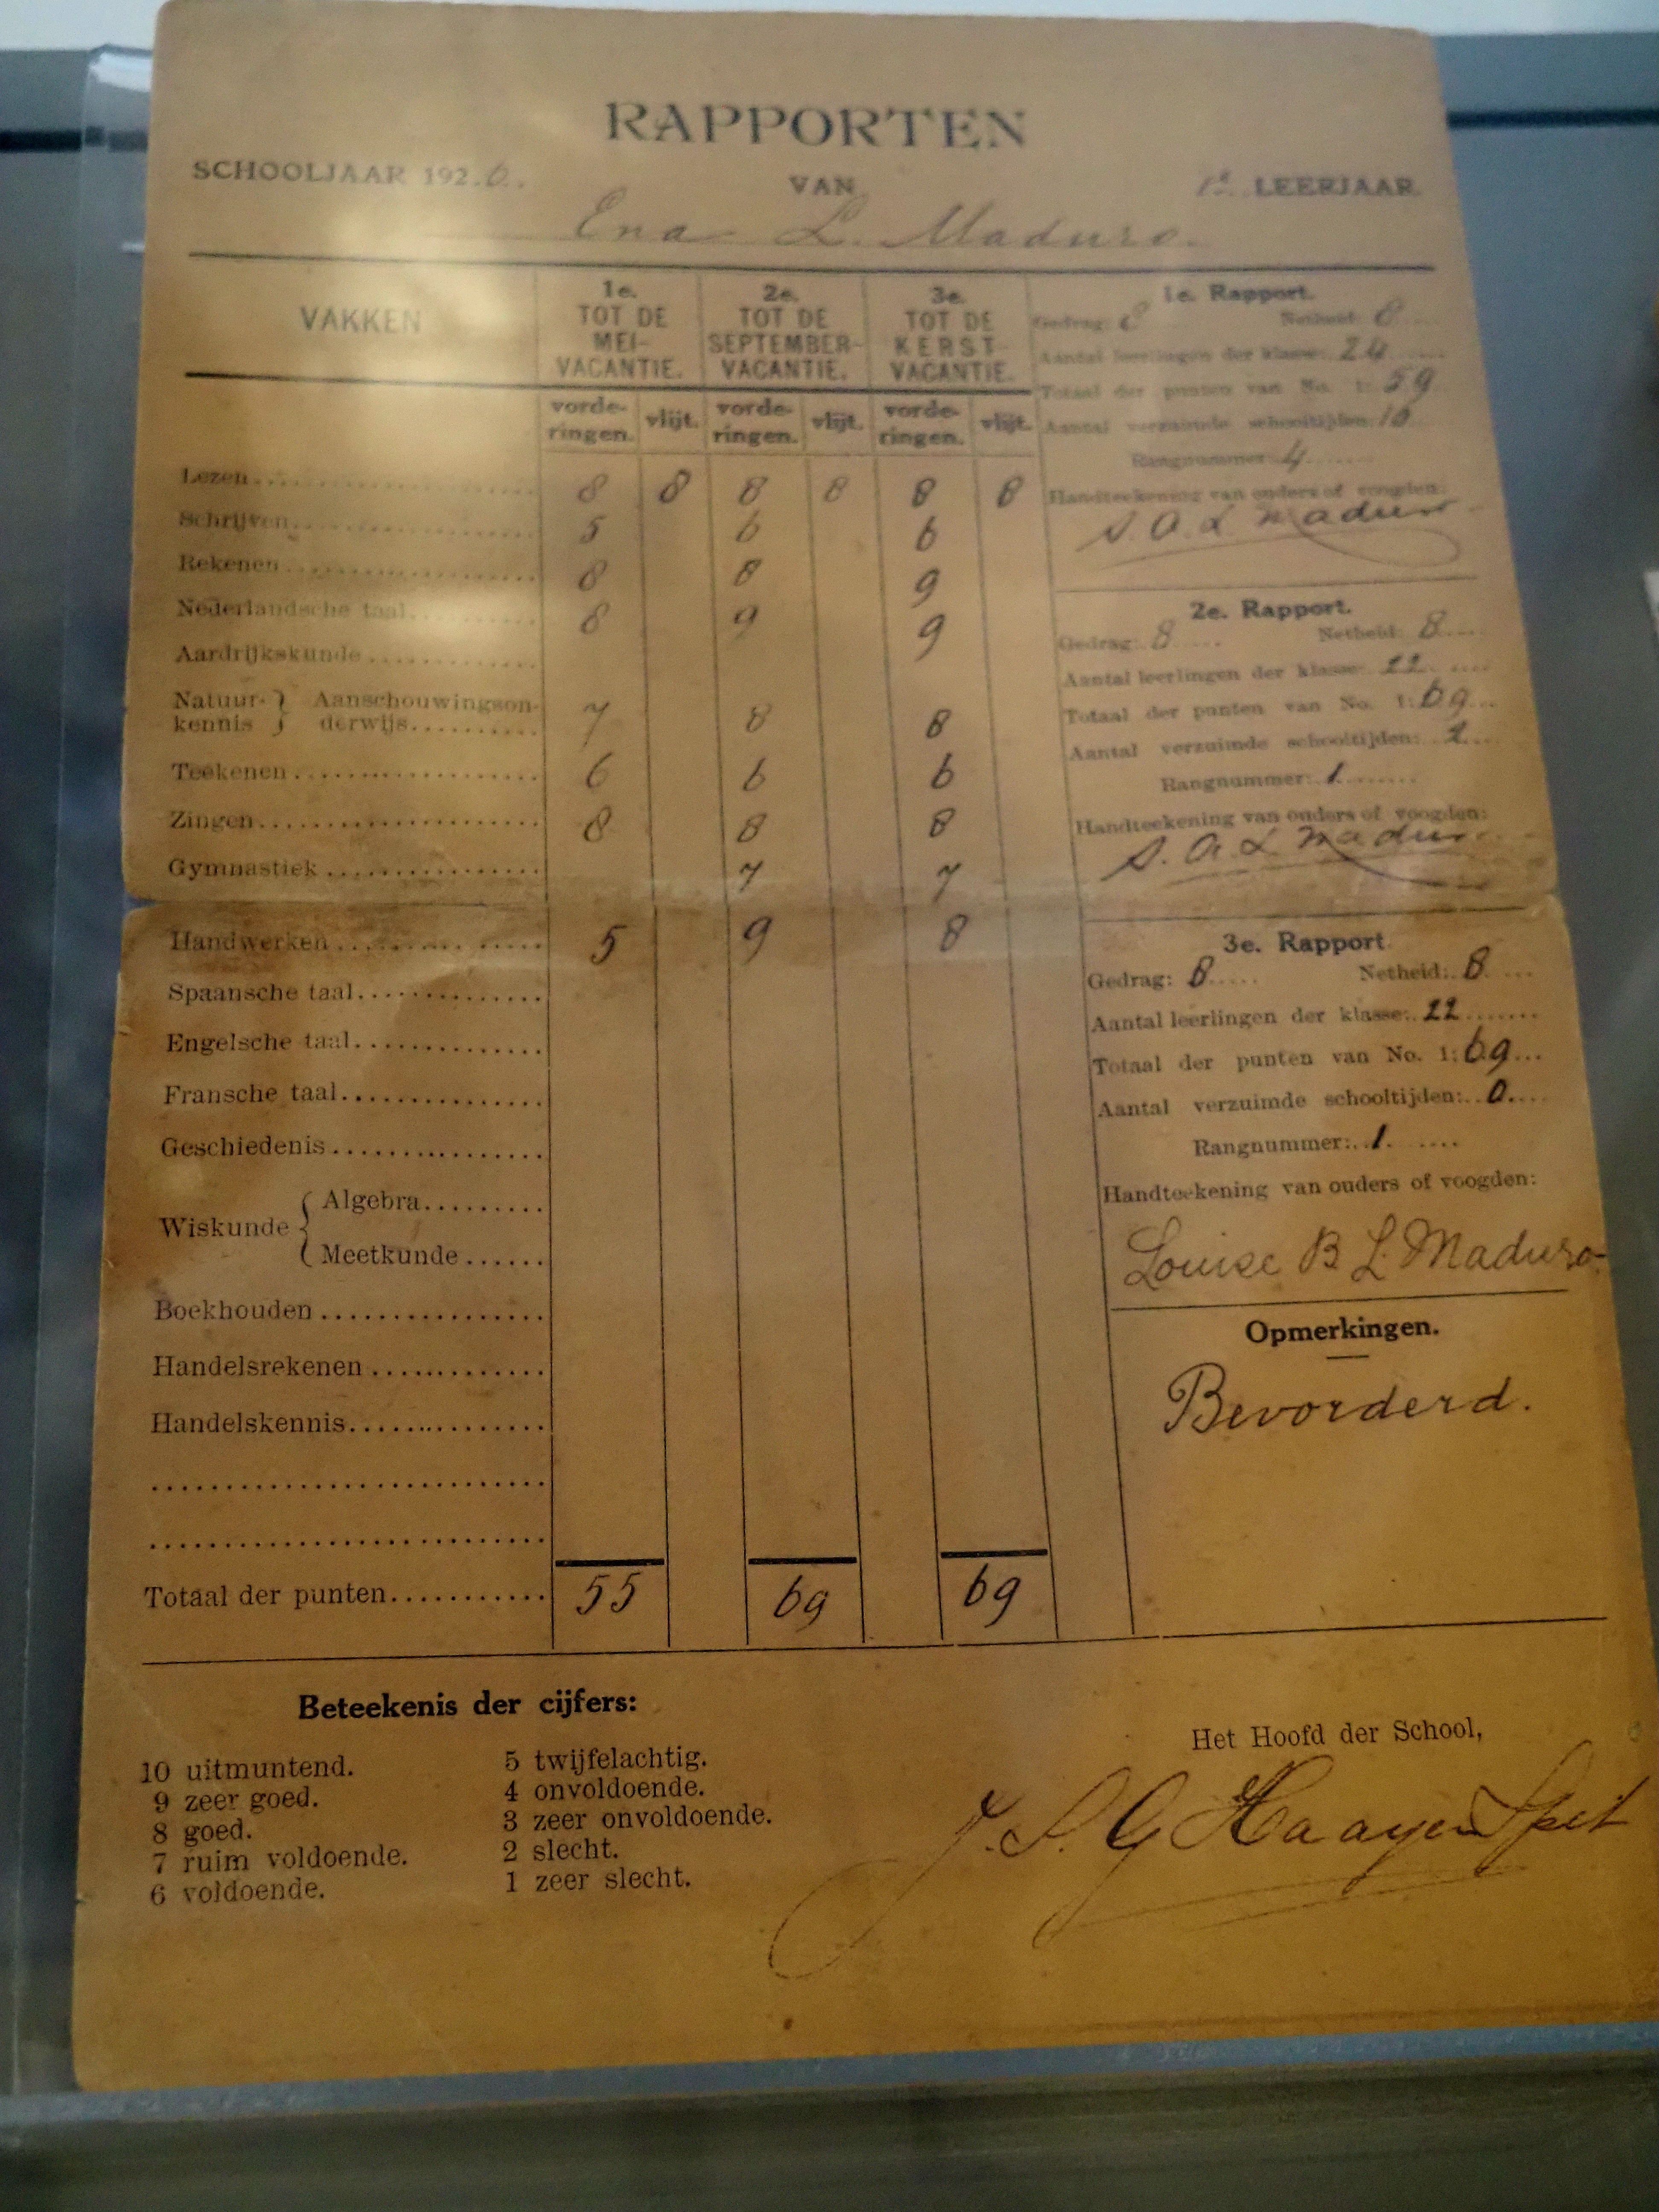 RAPPORTEN
SCHOOLJAAR 1920. VAN 1e. LEERJAAR.
Ena L. Maduro.
VAKKEN
1e. TOT DE MEI-VACANTIE.
2e. TOT DE SEPTEMBER-VACANTIE.
3e. TOT DE KERST-VACANTIE.
vorde-ringen. vlijt. vorde-ringen. vlijt. vorde-ringen. vlijt.
Lezen 8 8 8 8 8 8
Schrijven 5 6 6
Rekenen 8 8 9
Nederlandsche taal 8 9 9
Aardrijkskunde
Natuur-kennis } Aanschouwingson-derwijs 7 8 8
Teekenen 6 6 6
Zingen 8 8 8
Gymnastiek 7 7
Handwerken 5 9 8
Spaansche taal
Engelsche taal
Fransche taal
Geschiedenis
Wiskunde { Algebra
Meetkunde
Boekhouden
Handelsrekenen
Handelskennis
Totaal der punten 55 69 69
1e. Rapport.
Gedrag: 8 Netheid: 8
Aantal leerlingen der klasse: 24
Totaal der punten van No. 1: 59
Aantal verzuimde schooltijden: 10
Rangnummer: 4
Handteekening van ouders of voogden:
S. A. L Maduro
2e. Rapport.
Gedrag: 8 Netheid: 8
Aantal leerlingen der klasse: 22
Totaal der punten van No. 1: 69
Aantal verzuimde schooltijden: 2
Rangnummer: 1
Handteekening van ouders of voogden:
S. A. L Maduro
3e. Rapport
Gedrag: 8 Netheid: 8
Aantal leerlingen der klasse: 22
Totaal der punten van No. 1: 69
Aantal verzuimde schooltijden: 0
Rangnummer: 1
Handteekening van ouders of voogden:
Louise B L. Maduro
Opmerkingen.
Bevorderd.
Beteekenis der cijfers:
10 uitmuntend.
9 zeer goed.
8 goed.
7 ruim voldoende.
6 voldoende.
5 twijfelachtig.
4 onvoldoende.
3 zeer onvoldoende.
2 slecht.
1 zeer slecht.
Het Hoofd der School,